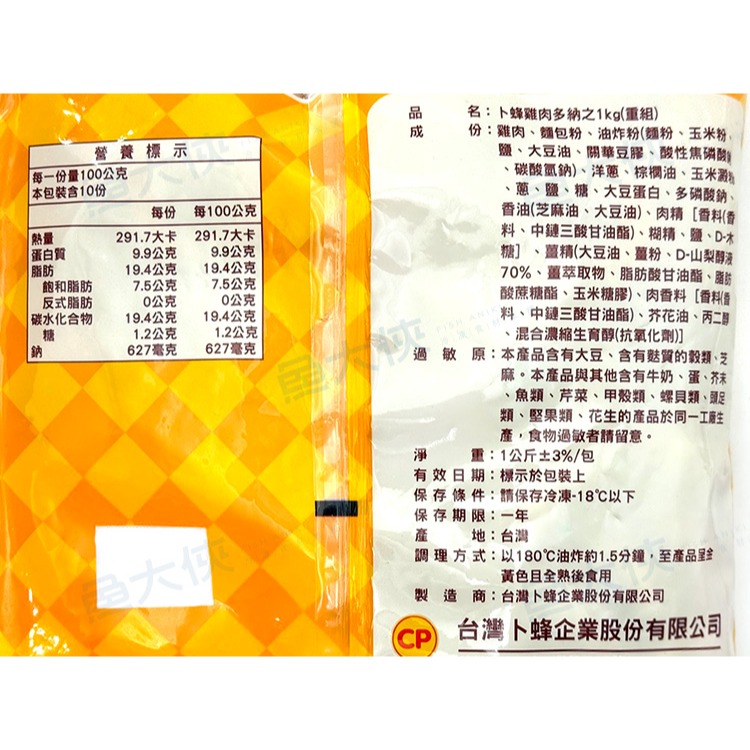 營養標示
每一份量100公克
本包裝含10份
每份 每100公克
熱量 291.7大卡 291.7大卡
蛋白質 9.9公克 9.9公克
脂肪 19.4公克 19.4公克
飽和脂肪 7.5公克 7.5公克
反式脂肪 0公克 0公克
碳水化合物 19.4公克 19.4公克
糖 1.2公克 1.2公克
鈉 627毫克 627毫克
品名：卜蜂雞肉多納之1kg(重組)
成份：雞肉、麵包粉、油炸粉(麵粉、玉米粉、
鹽、大豆油、關華豆膠、酸性焦磷酸鈉
、碳酸氫鈉)、洋蔥、棕櫚油、玉米澱粉
、蔥、鹽、糖、大豆蛋白、多磷酸鈉、
香油(芝麻油、大豆油)、肉精［香料(香
料、中鏈三酸甘油酯)、糊精、鹽、D-木
糖］、薑精(大豆油、薑粉、D-山梨醇液
70%、薑萃取物、脂肪酸甘油酯、脂肪
酸蔗糖酯、玉米糖膠)、肉香料［香料(香
料、中鏈三酸甘油酯)、芥花油、丙二醇
、混合濃縮生育醇(抗氧化劑)］
過敏原：本產品含有大豆、含有麩質的穀類、芝
麻。本產品與其他含有牛奶、蛋、芥末
、魚類、芹菜、甲殼類、螺貝類、頭足
類、堅果類、花生的產品於同一工廠生
產，食物過敏者請留意。
淨重：1公斤±3%/包
有效日期：標示於包裝上
保存條件：請保存冷凍-18℃以下
保存期限：一年
產地：台灣
調理方式：以180℃油炸約1.5分鐘，至產品呈金
黃色且全熟後食用
製造商：台灣卜蜂企業股份有限公司
CP 台灣卜蜂企業股份有限公司
魚大俠
魚大俠
魚大俠